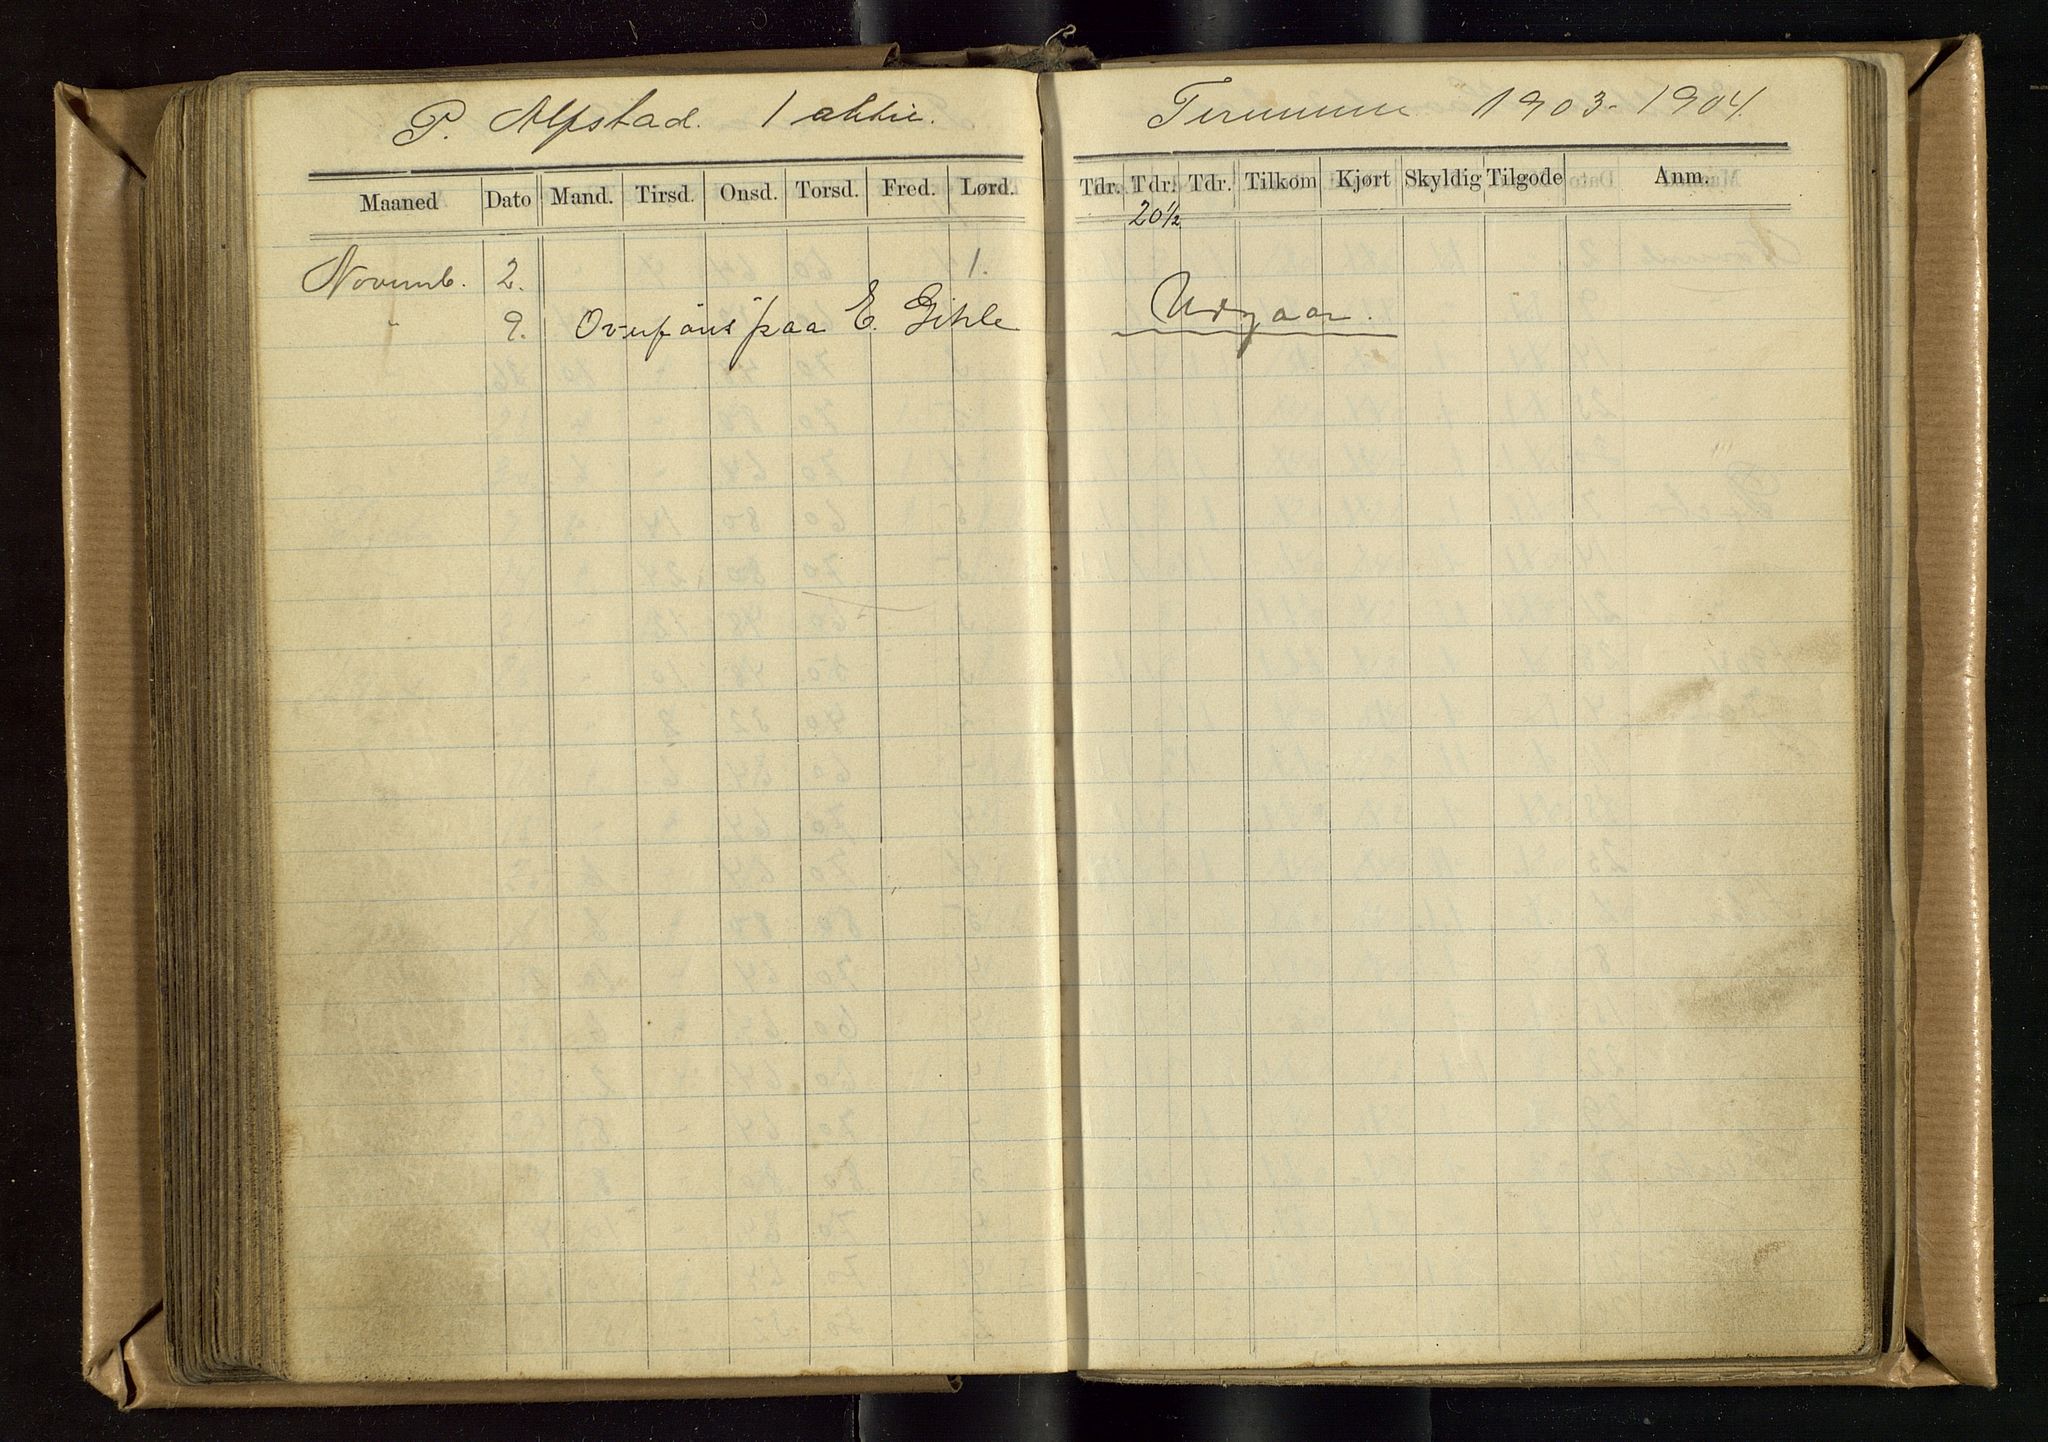 P. Alfstad. 1 aktie.
Terminen 1903-1904.
Maaned Dato Mand. Tirsd. Onsd. Torsd. Fred. Lørd.
Tdr. Tdr. Tdr. Tilkom Kjørt Skyldig Tilgode Anm.
20½
Novemb. 2. 1.
" 9. Overføris paa E. Gihle Udgaar.